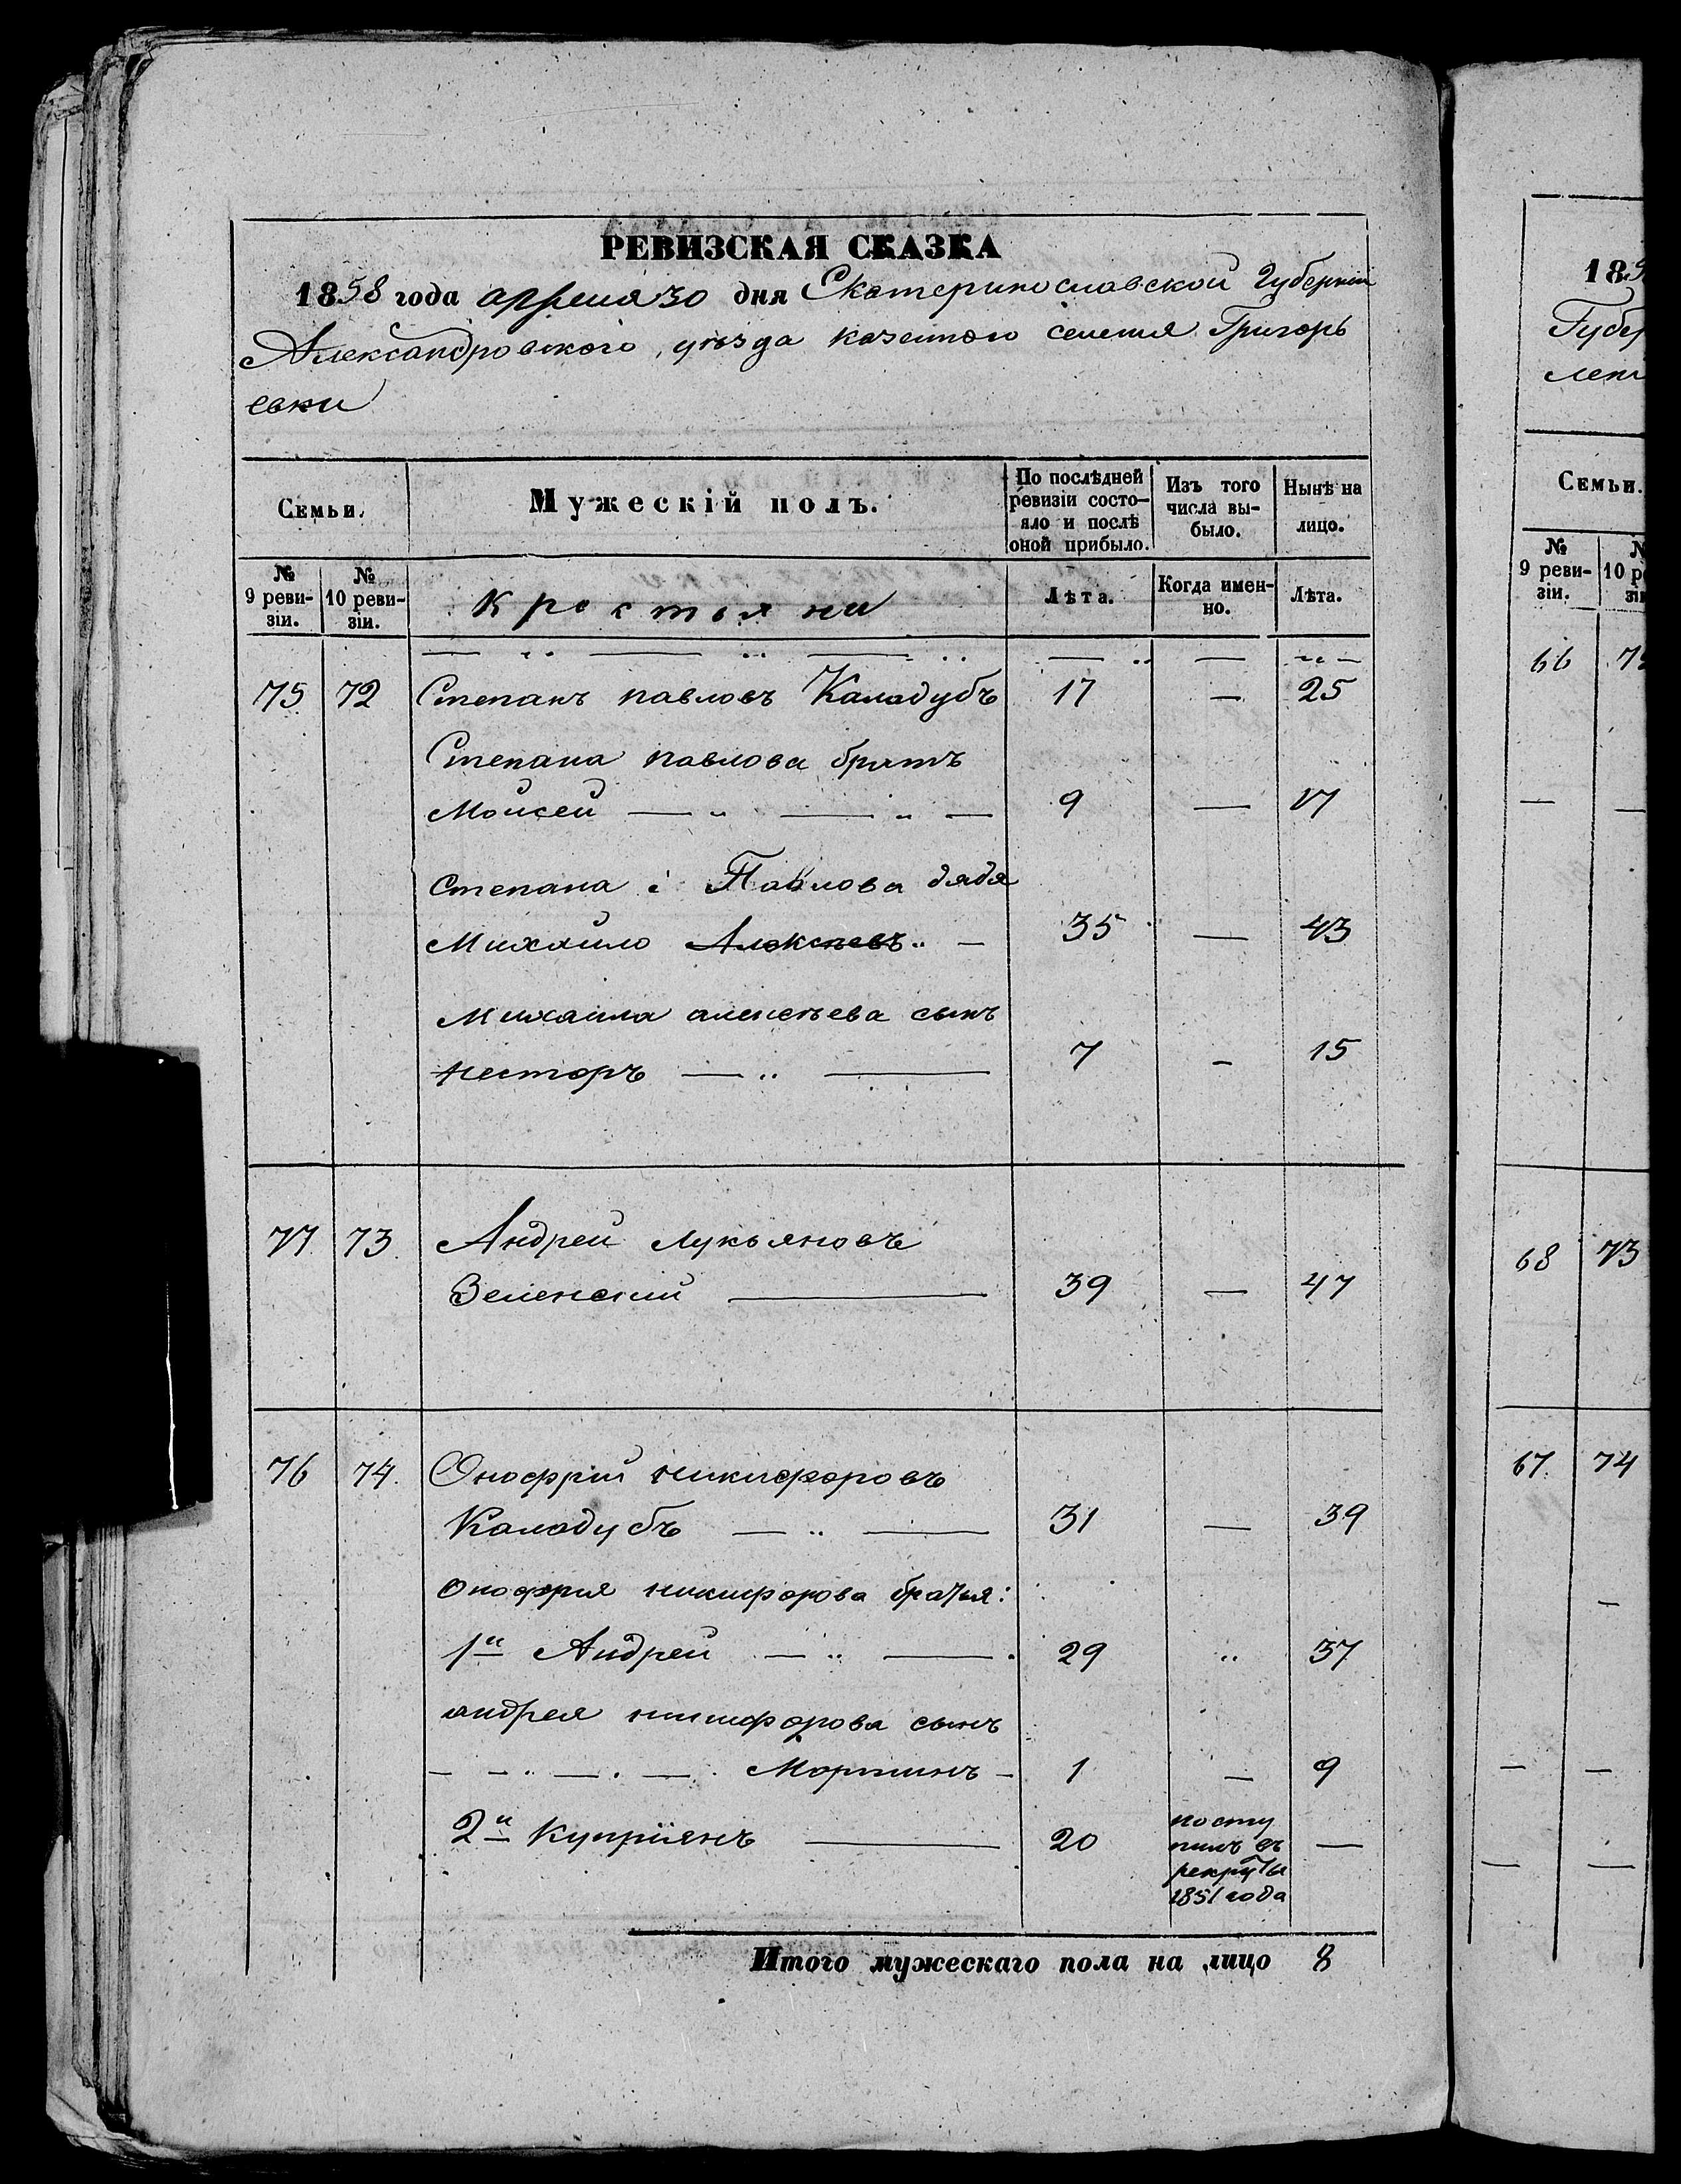 РЕВИЗСКАЯ СКАЗКА
1858 года апреля 30 дня Екатеринославской Губерніи
Александровского, уѣзда казенного селенія Григорь
евки
Семьи.
Мужескій полъ.
По послѣдней ревизіи состо-яло и послѣ оной прибыло.
Изъ того числа вы-было.
Нынѣ на лицо.
№ 9 реви-зіи.
№ 10 реви-зіи.
Крестьяни
Лѣта.
Когда имен-но.
Лѣта.
75 72 Степанъ павловъ Каладубъ 17 — 25
Степана павлова братъ
Мойсей — „ — „ — 9 — 17
Степана : Павлова дядя
Михайло Алексѣевъ „ — 35 — 43
Михайла алексѣева сынъ
несторъ — „ — 7 — 15
77. 73. Андрей Лукьяновъ
Зеленский — 39 — 47
76 74. Онофрий никифоровъ
Каладубъ — „ — 31 — 39
Онофрия никифорова братья:
1й Андрей — „ — 29 „ 37
андрея никифорова сынъ
— — „ — . — . Мартинъ — 1 — 9
2й Куприянъ — 20 посту
пилъ въ —
рекруты
1851 года
Итого мужескаго пола на лицо 8
183
Губер
лен
Семьи.
№ 9 реви-зіи.
№ 10 р
66 72
—
68 73
67. 74